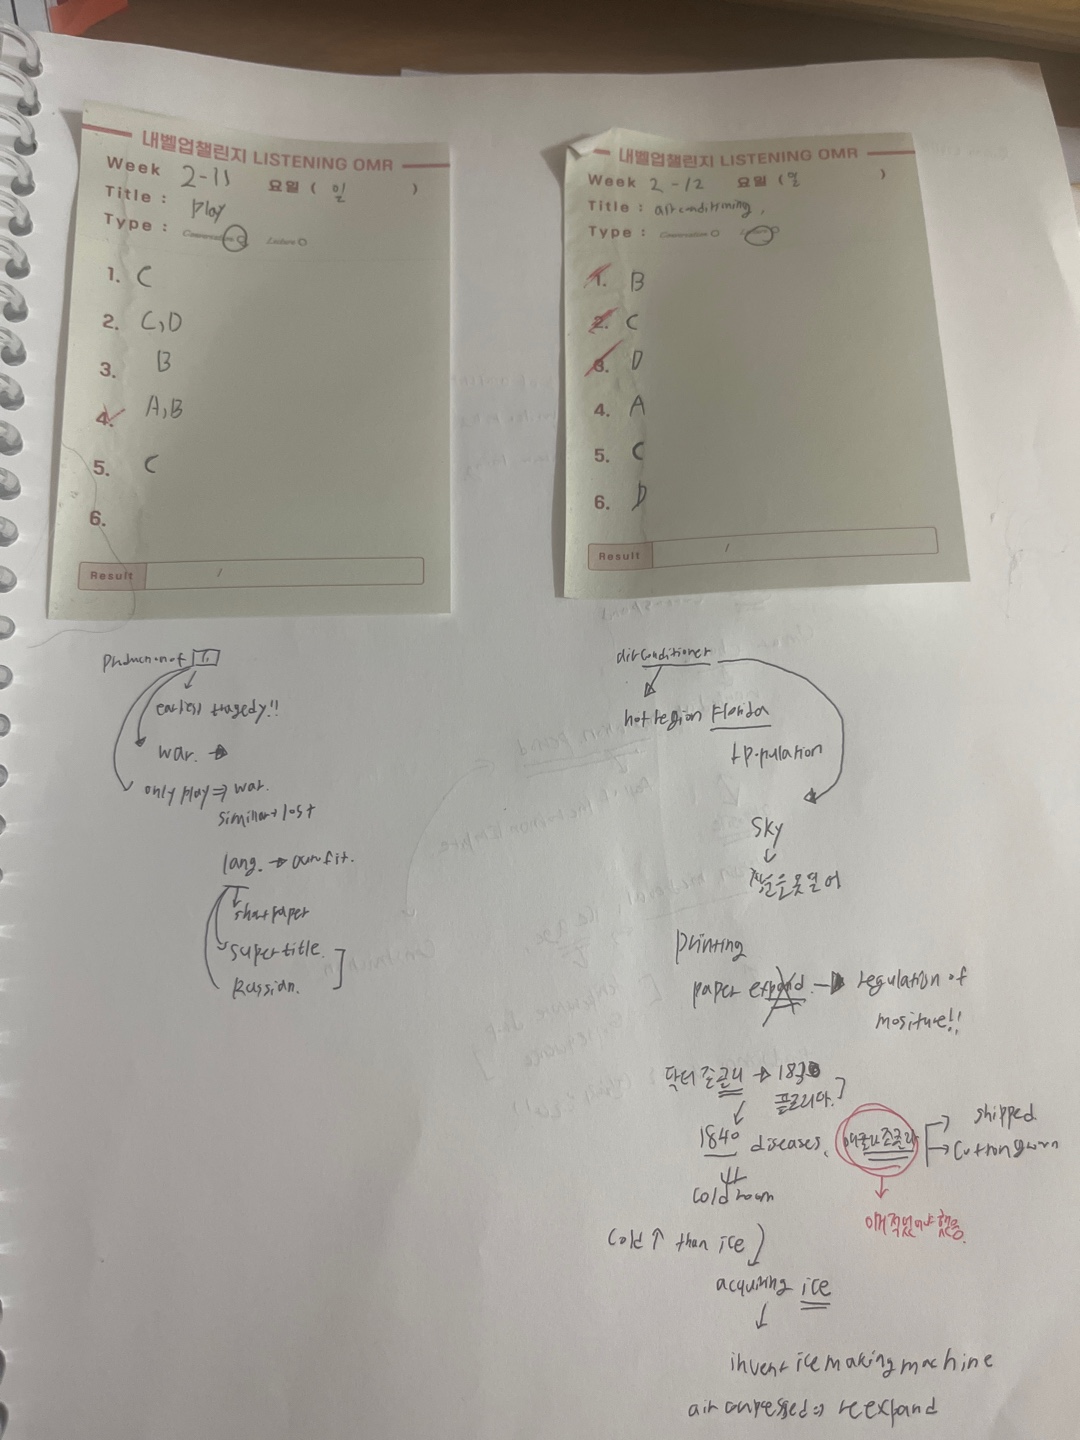 내벨업챌린지 LISTENING OMR
Week 2-11 요일 ( 일 )
Title : play
Type : Conversation Lecture
1. C
2. C,D
3. B
4. A,B
5. C
6.
Result /
내벨업챌린지 LISTENING OMR
Week 2-12 요일 ( 일 )
Title : airconditioning,
Type : Conversation Lecture
1. B
2. C
3. D
4. A
5. C
6. D
Result /
production of
earliest tragedy!!
war. →
only play ⇒ war.
similar lost
lang. →
short paper
supertitle.
Russian.
airconditioner
hot region Florida
population
sky
printing
paper expand → regulation of
mositure!!
닥터 존 → 183
플로리다.
1840 diseases,
shipped
cold room
이걸 적었어야 했음.
cold ↑ than ice
acquiring ice
invent ice making machine
air compressed ⇒ reexpand